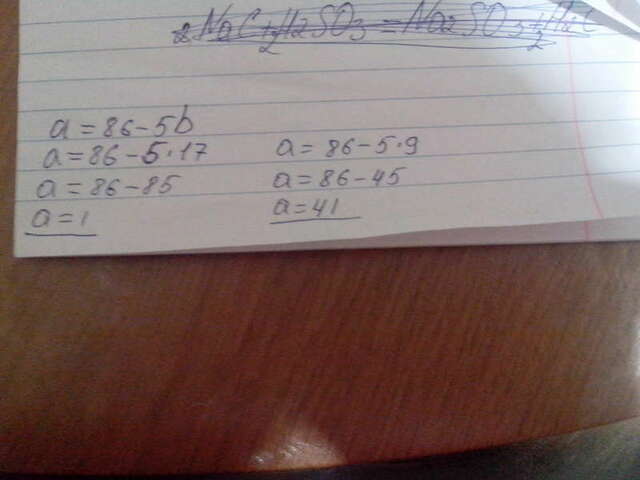 a = 86 - 5b
a = 86 - 5·17
a = 86 - 85
a = 1
a = 86 - 5·9
a = 86 - 45
a = 41